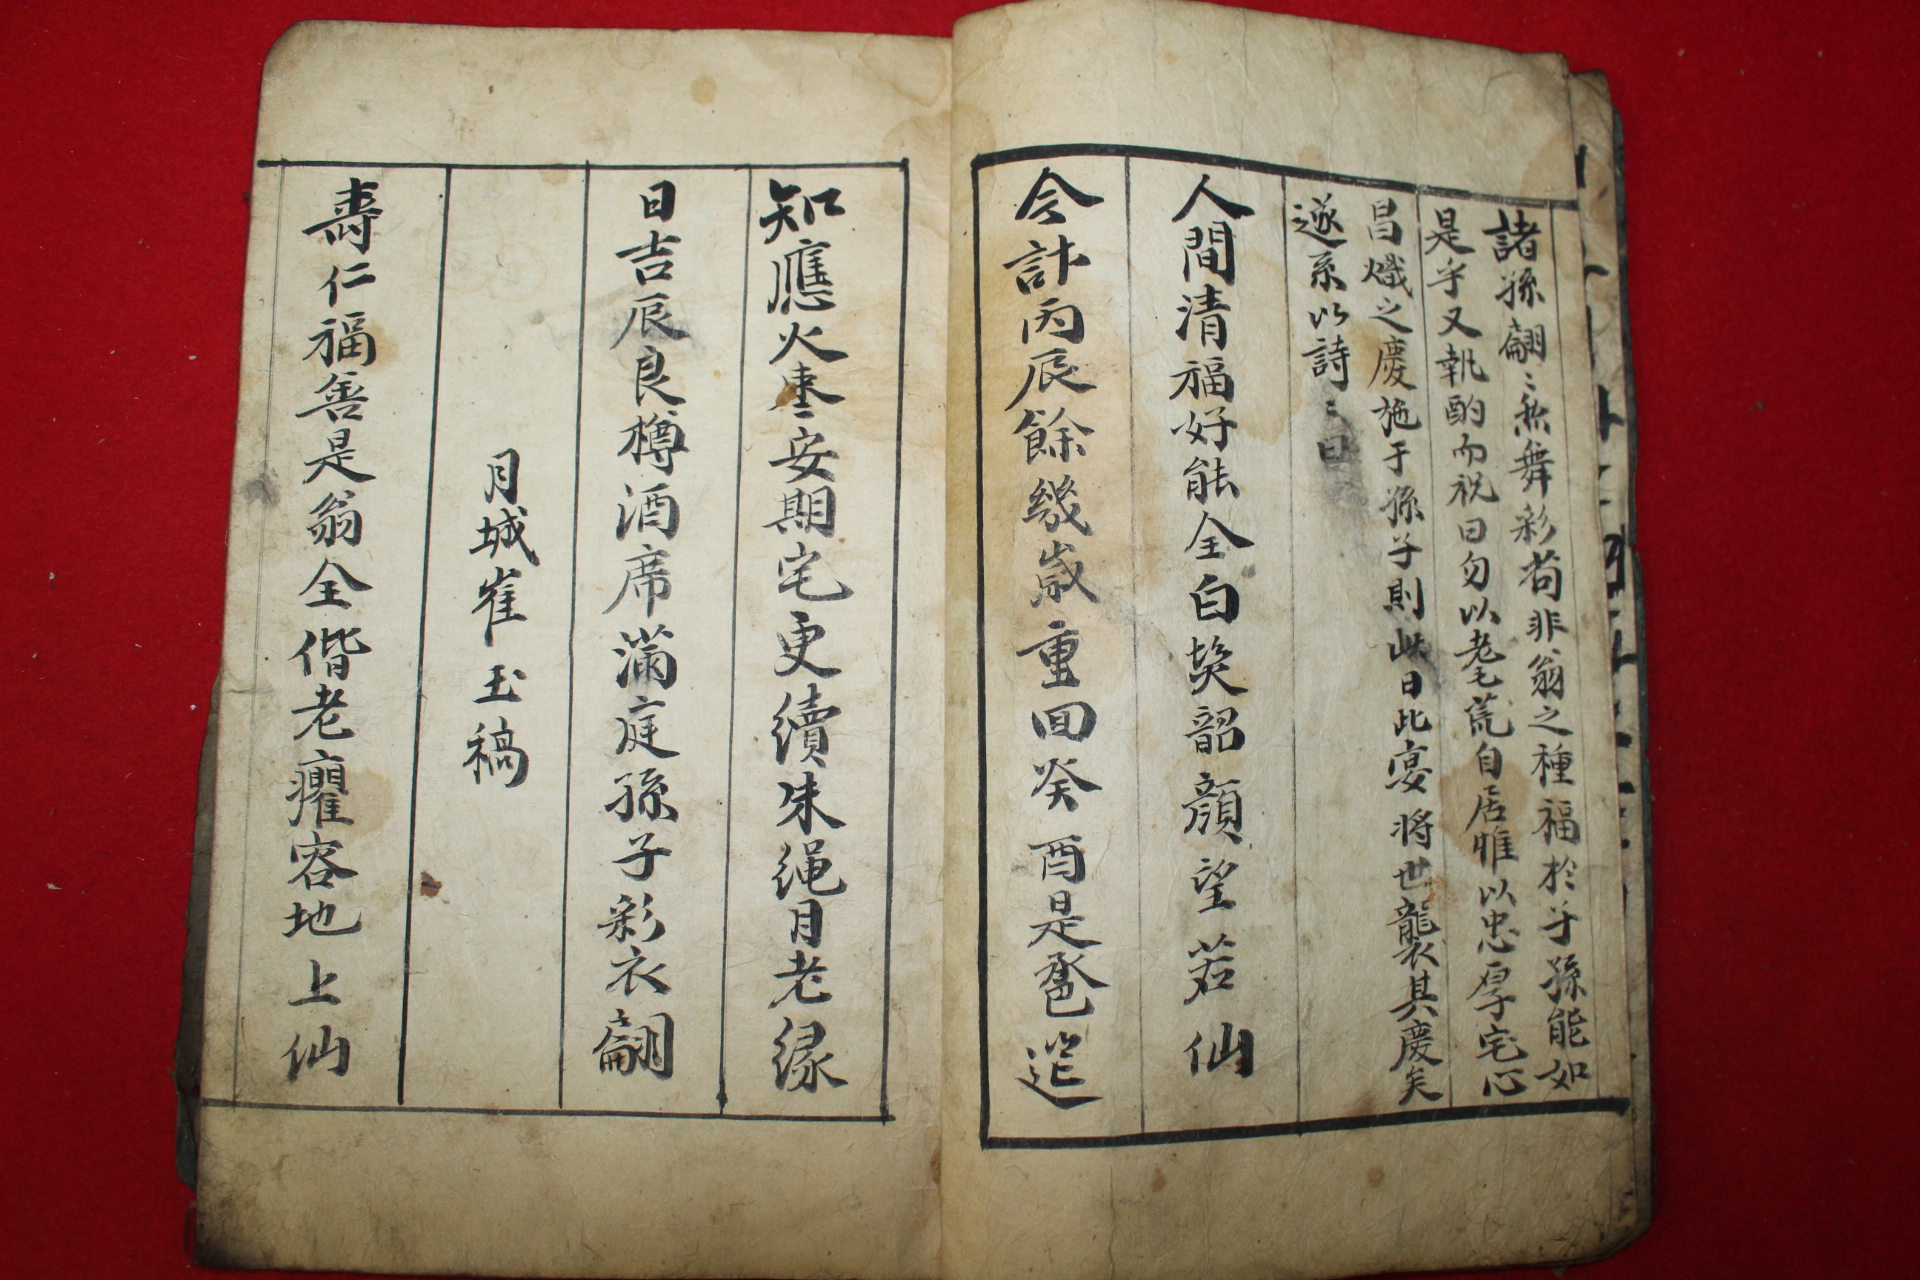 諸孫翩〻然舞彩苟非翁之種福於子孫能如
是乎又執酌而祝曰勿以老耄荒自居惟以忠厚宅心
昌熾之慶施于孫子則此日此宴將世襲其慶矣
遂系以詩〻曰
人間清福好能全白髮韶顔望若仙
今計丙辰餘幾歲重回癸酉是卺筵
知應火棗安期宅更續朱繩月老緣
日吉辰良樽酒席滿庭孫子彩衣翩
月城崔玉稿
壽仁福善是翁全偕老癯容地上仙